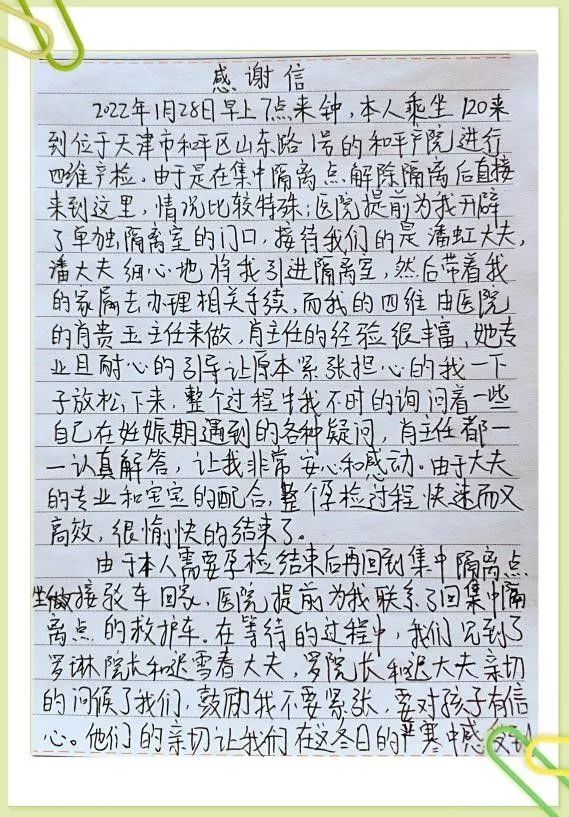 感谢信
2022年1月28日早上7点来钟，本人乘坐120来
到位于天津市和平区山东路1号的和平产院进行
四维产检。由于是在集中隔离点解除隔离后直接
来到这里，情况比较特殊，医院提前为我开辟
了单独隔离室的门口，接待我们的是潘虹大夫，
潘大夫细心地将我引进隔离室，然后带着我
的家属去办理相关手续，而我的四维由医院
的肖贵玉主任来做，肖主任的经验很丰富，她专
业且耐心的引导让原本紧张担心的我一下
子放松下来，整个过程中我不时的询问着一些
自己在妊娠期遇到的各种疑问，肖主任都一
一认真解答，让我非常安心和感动。由于大夫
的专业和宝宝的配合，整个孕检过程快速而又
高效，很愉快的结束了。
由于本人需要孕检结束后再回到集中隔离点
坐接驳车回家，医院提前为我联系了回集中隔
离点的救护车。在等待的过程中，我们见到了
罗琳院长和迟雪春大夫，罗院长和迟大夫亲切
的问候了我们，鼓励我不要紧张，要对孩子有信
心。他们的亲切让我们在这冬日的严寒中感